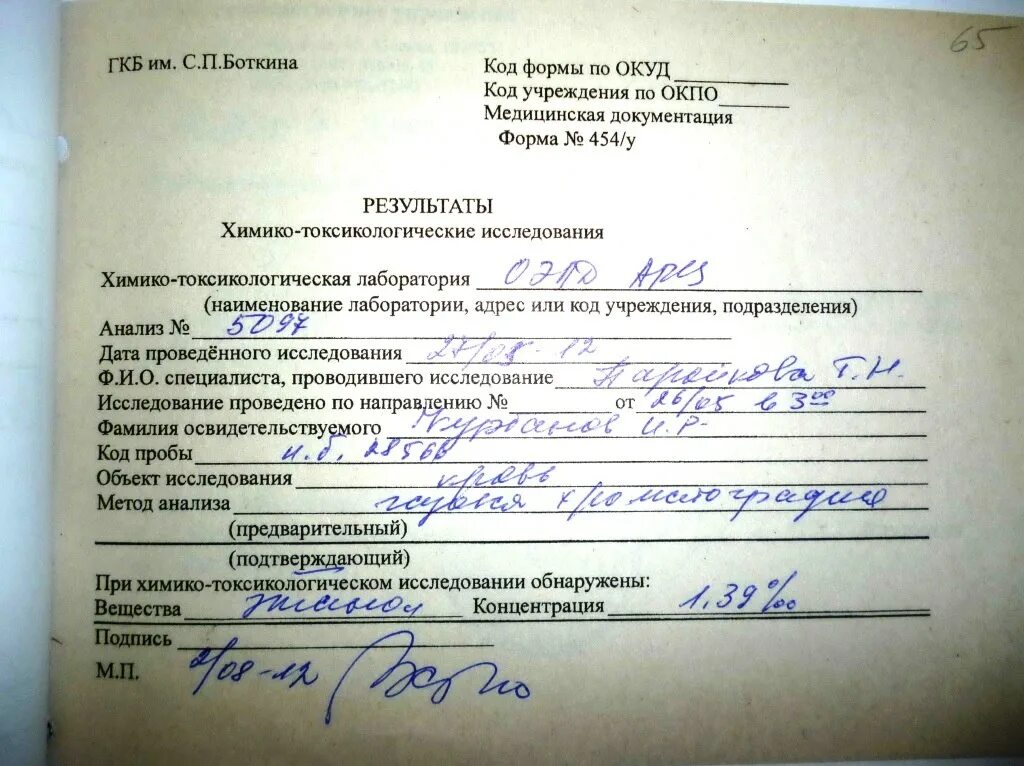 65
ГКБ им. С.П.Боткина
Код формы по ОКУД
Код учреждения по ОКПО
Медицинская документация
Форма № 454/у
РЕЗУЛЬТАТЫ
Химико-токсикологические исследования
Химико-токсикологическая лаборатория
(наименование лаборатории, адрес или код учреждения, подразделения)
Анализ № 5097
Дата проведённого исследования 27/05-12
Ф.И.О. специалиста, проводившего исследование Т.Н.
Исследование проведено по направлению № от 26/05 в 3 00
Фамилия освидетельствуемого Курбанов И.Р-
Код пробы и.б. 28560
Объект исследования кровь
Метод анализа хроматография
(предварительный)
(подтверждающий)
При химико-токсикологическом исследовании обнаружены:
Вещества этанол Концентрация 1,39‰
Подпись
М.П. /08-12